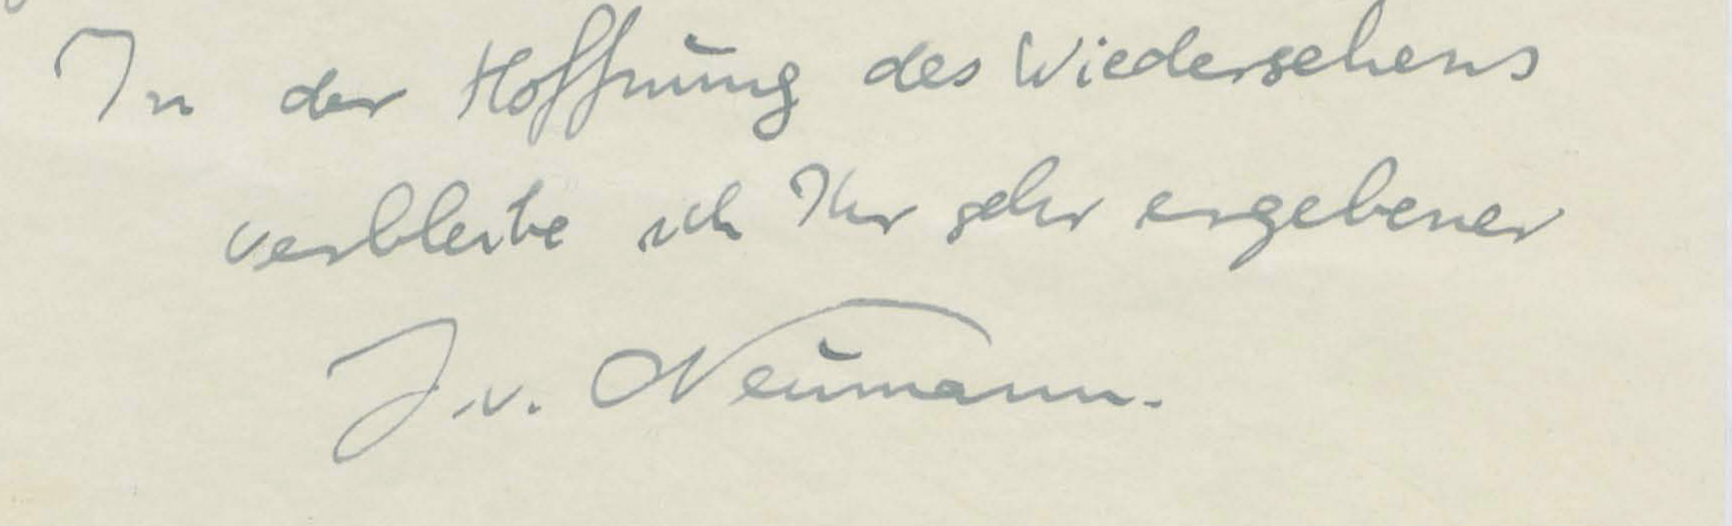 In der Hoffnung des Wiedersehens
verbleibe ich Ihr sehr ergebener
J. v. Neumann.